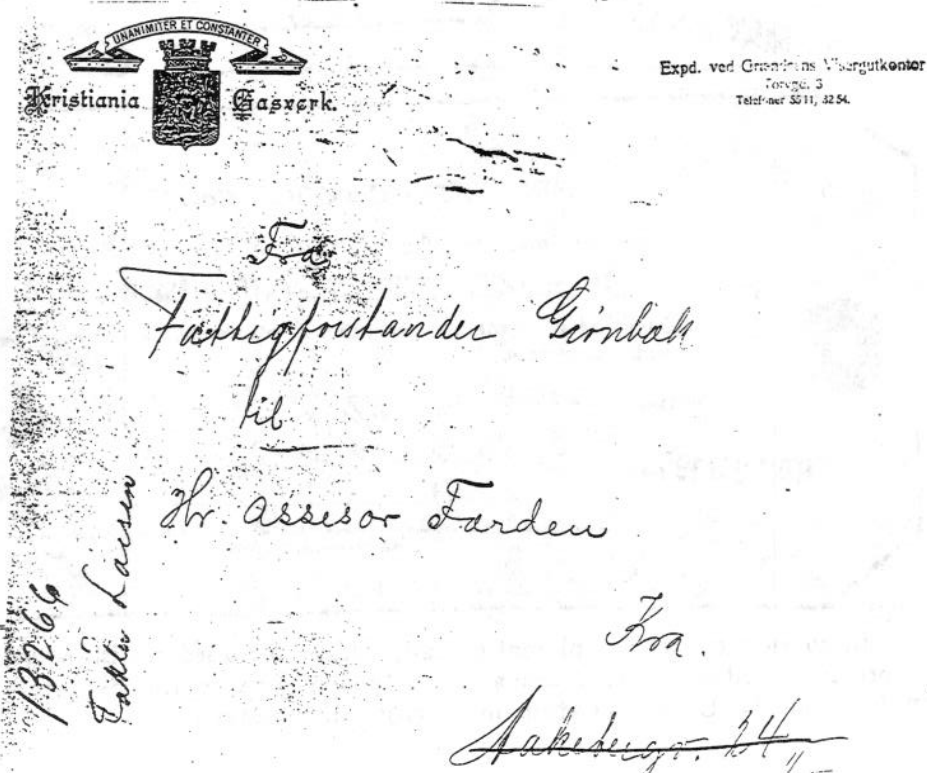 UNANIMITER ET CONSTANTER
Kristiania Gasverk.
Expd. ved Grændsens Visergutkontor
Torvgd. 3
Telefoner 5511, 3254.
Fra
Fattigforstander Grönbæk
til
Hr. Assesor Farden
Kra.
Aakebergv. 24
13266
Larsen